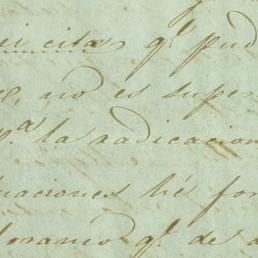 cita q.^e pud
, no es super
p.^a la radicacion
uaciones hé for
q.^e de a